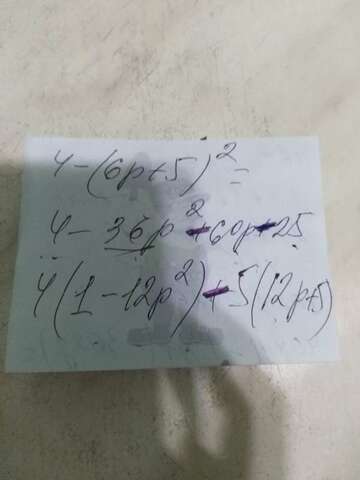 4-(6p+5)²=
4-36p²-60p-25
4(1-12p²)-5(12p+5)